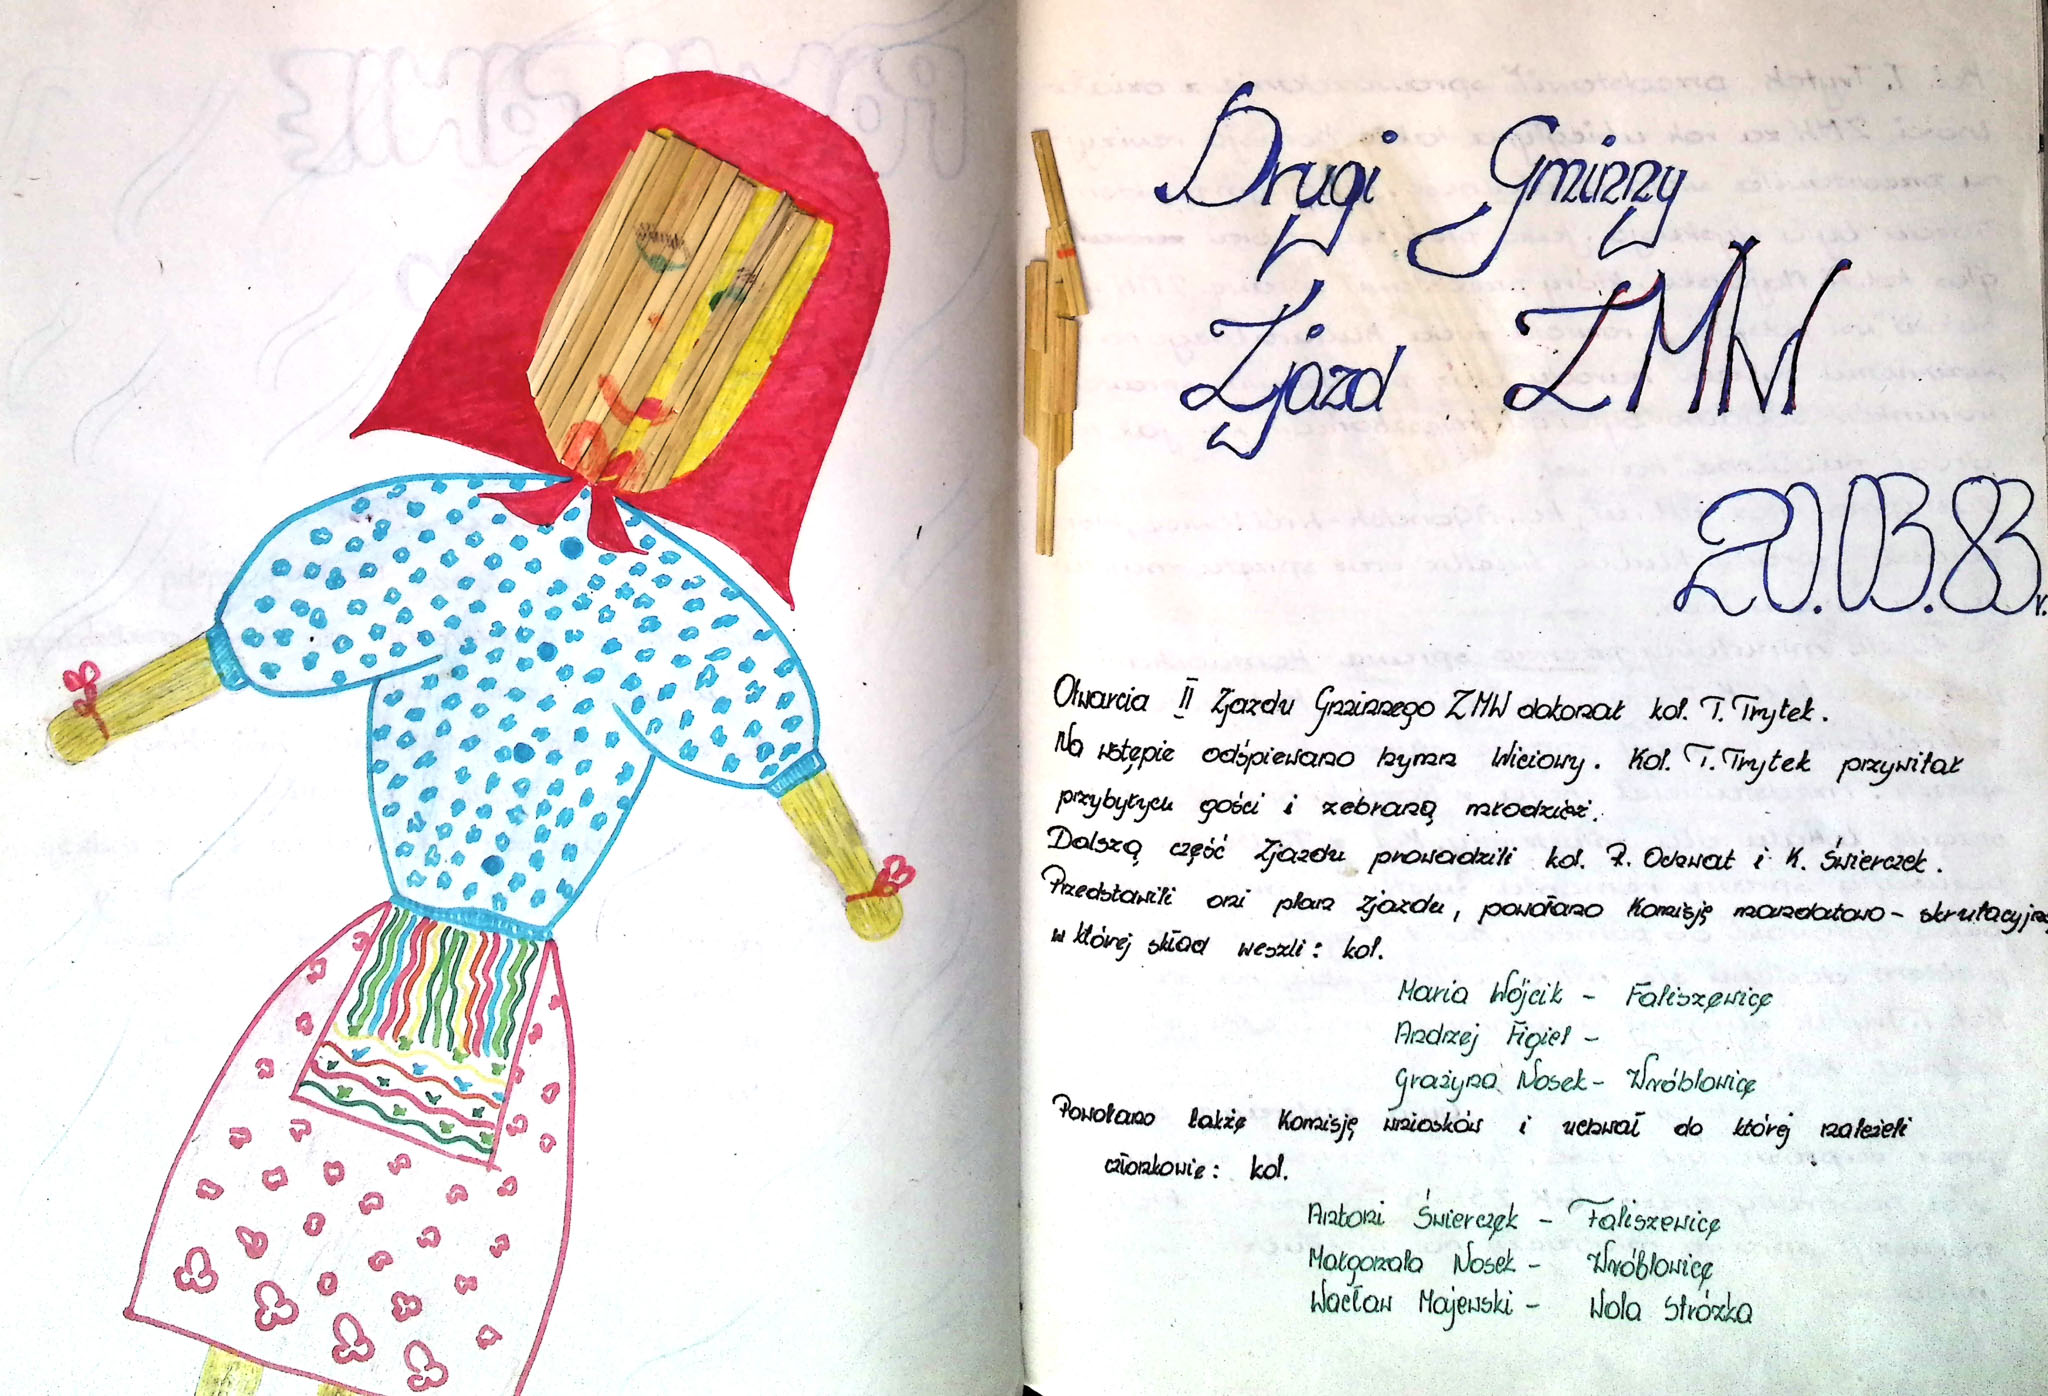 Drugi Gminny
Zjazd ZMW
20.03.83r.
Otwarcia II Zjazdu Gminnego ZMW dokonał kol. T. Trytek.
Na wstępie odśpiewano hymn Wiciowy. Kol. T. Trytek przywitał
przybyłych gości i zebraną młodzież.
Dalszą część Zjazdu prowadzili kol. Z. Ochwat i K. Świerczek.
Przedstawili oni plan Zjazdu, powołano Komisję mandatowo-skrutacyjną
w której skład weszli: kol.
Maria Wójcik - Faliszewice
Andrzej Figiel -
Grażyna Nosek - Wróblowice
Powołano także Komisję wniosków i uchwał do której należeli
członkowie: kol.
Antoni Świerczek - Faliszewice
Małgorzata Nosek - Wróblowice
Wacław Majewski - Wola Stróska